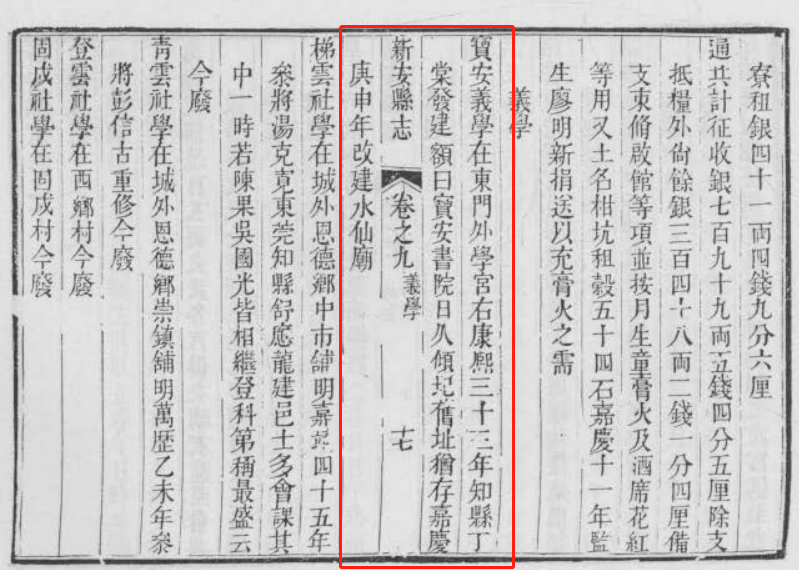 寮租銀四十一兩四錢九分六厘
通共計征收銀七百九十九兩五錢四分五厘除支
抵糧外尙餘銀三百四十八兩二錢一分四厘備
支束脩啟館等項並按月生童膏火及酒席花紅
等用又土名柑坑租穀五十四石嘉慶十一年監
生廖明新捐送以充膏火之需
義學
寶安義學在東門外學宮右康熙三十三年知縣丁
棠發建額曰寶安書院日久傾圮舊址猶存嘉慶
新安縣志 卷之九 義學 十七
庚申年改建水仙廟
梯雲社學在城外恩德鄉中市舖明嘉靖四十五年
叅將湯克寬東莞知縣舒應龍建邑士多會課其
中一時若陳果吳國光皆相繼登科第稱最盛云
今廢
靑雲社學在城外恩德鄉崇鎮舖明萬歷乙未年叅
將彭信古重修今廢
登雲社學在西鄉村今廢
固戍社學在固戍村今廢